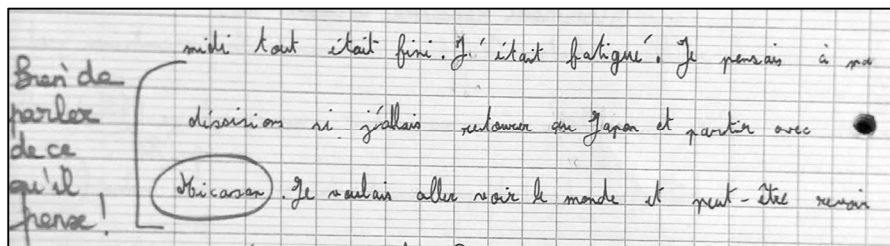 Bien de
parler
de ce
qu'il
pense!
midi tout était fini. J'était fatigué. Je pensais à ma
dissision si j'allais retourner au Japon et partir avec
Micasan. Je voulais aller voir le monde et peut-être revoir